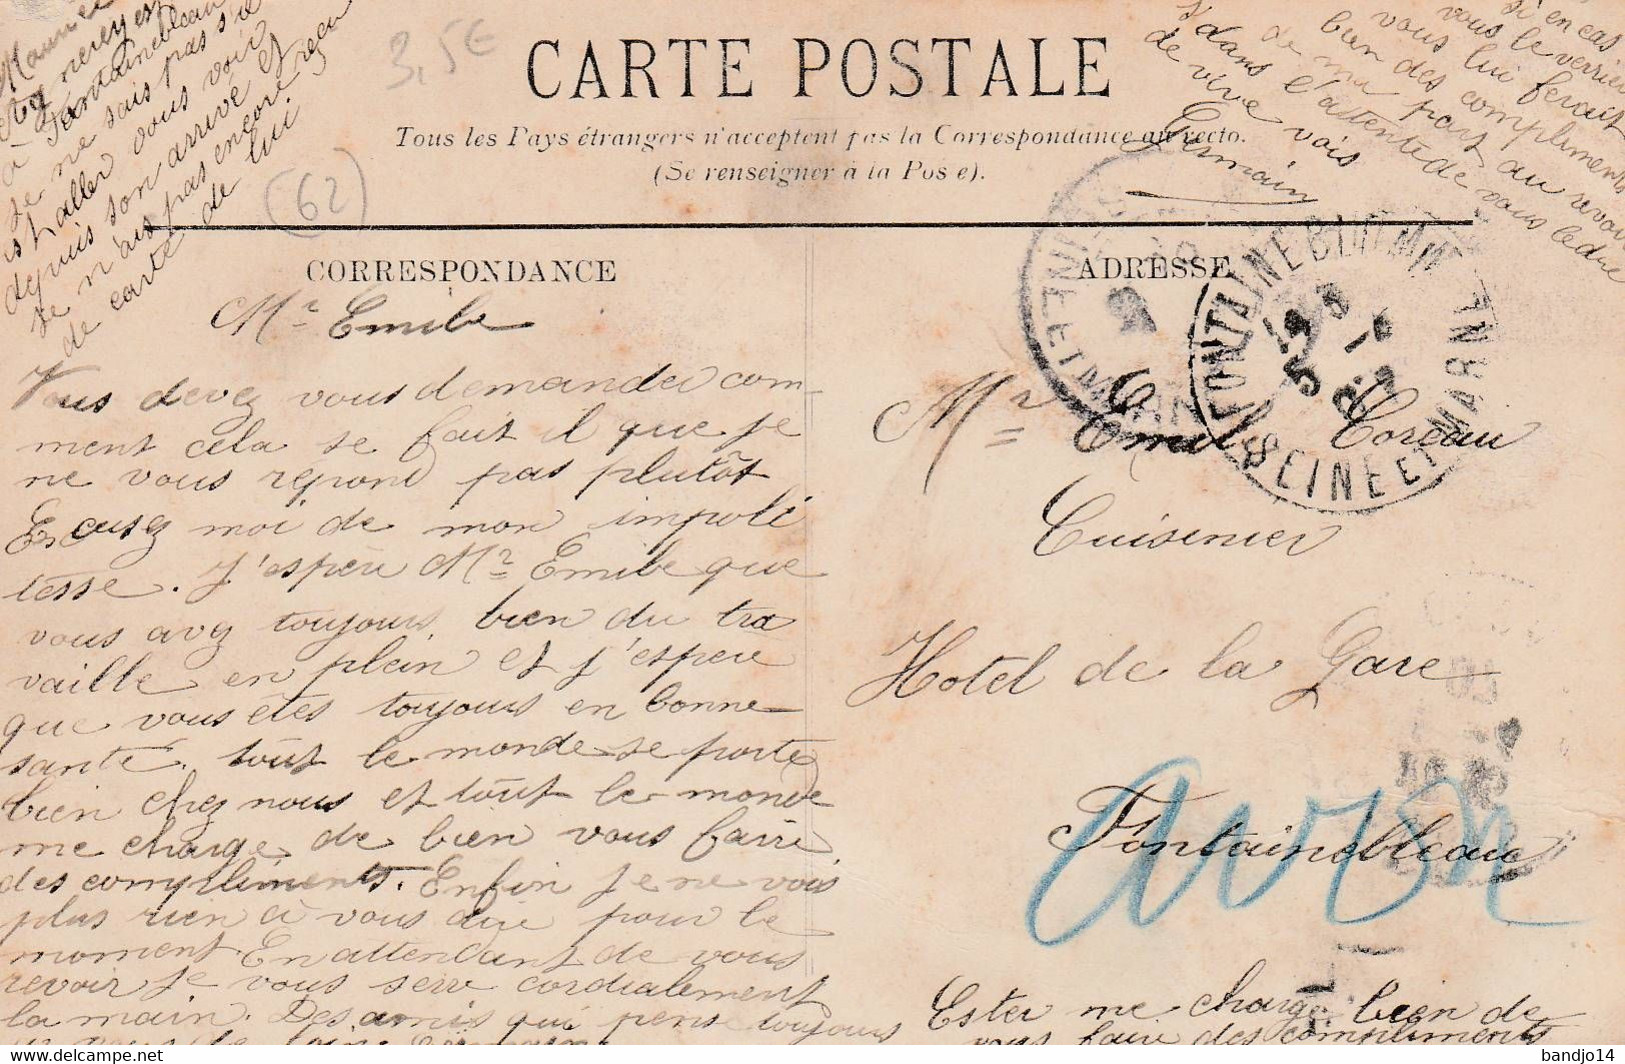 CARTE POSTALE
Tous les Pays étrangers n'acceptent pas la Correspondance au recto.
(Se renseigner à la Poste).
3,5€
(62)
à Fontainebleau
je ne sais pas s'il
est aller vous voir
depuis son arrivé et
je n'ais pas encore reçu
de carte de lui
si en cas
vous le verriez
vous lui ferait
bien des compliments
de ma part au revoir
dans l'attente de vous ledire
de vive vois
Germain
CORRESPONDANCE
Mr Emile
Vous devez vous demander com-
ment cela se fait il que je
ne vous repond pas plutôt
Excusez moi de mon impoli
tesse. J'espère Mr Emile que
vous avez toujours bien du tra
vaille en plein et j'espere
que vous êtes toujours en bonne
santé. tout le monde se porte
bien chez nous et tout le monde
me charge de bien vous faire
des compliments. Enfin je ne vois
plus rien à vous dire pour le
moment En attendant de vous
revoir je vous serre cordialement
la main. Des amis qui pense toujours
à vous de loin. Germain
ADRESSE
FONTAINEBLEAU
SEINE ET MARNE
Mr Emile Coreau
Cuisinier
Hotel de la Gare
Fontainebleau
Avon
Ester me charge bien de
vous faire des compliments
bandjo14